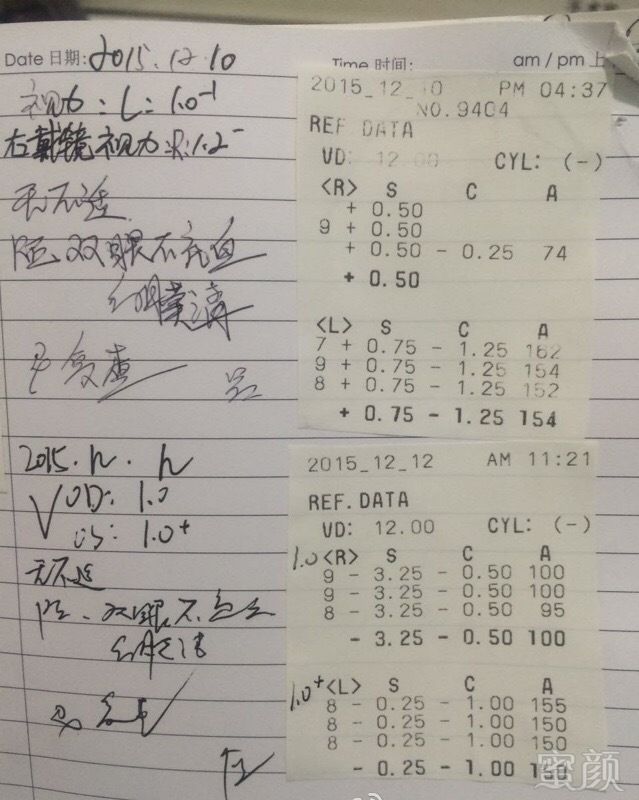 Date 日期: 2015.12.10
Time 时间:
am / pm 上
视力: L: 1.0⁻¹
右戴镜视力: R: 1.2⁻
无不适
双眼不充血
角膜清
复查
2015_12_10 PM 04:37
NO.9404
REF.DATA
VD: 12.00 CYL: (-)
<R> S C A
+ 0.50
9 + 0.50
+ 0.50 - 0.25 74
+ 0.50
<L> S C A
7 + 0.75 - 1.25 162
9 + 0.75 - 1.25 154
8 + 0.75 - 1.25 152
+ 0.75 - 1.25 154
2015.12.12
V OD: 1.0
OS: 1.0⁺
无不适
双眼不充血
角膜清
2015_12_12 AM 11:21
REF.DATA
VD: 12.00 CYL: (-)
1.0 <R> S C A
9 - 3.25 - 0.50 100
9 - 3.25 - 0.50 100
8 - 3.25 - 0.50 95
- 3.25 - 0.50 100
1.0⁺ <L> S C A
8 - 0.25 - 1.00 155
8 - 0.25 - 1.00 150
8 - 0.25 - 1.00 150
- 0.25 - 1.00 150
蜜颜